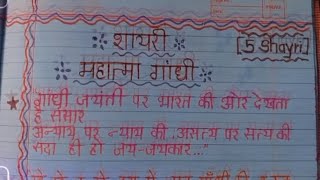 शायरी
[5 Shayri]
महात्मा गांधी
गांधी जयंती पर भारत की ओर देखता
है संसार
अन्याय पर न्याय की, असत्य पर सत्य की
सदा ही हो जय-जयकार..."